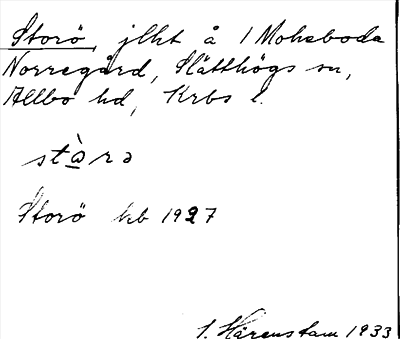 Storö, jlht å 1 Moheboda
Norregård, Slätthögs sn,
Allbo hd, Krbs l.
stà̱rə
Storö kb 1927
S. Härenstam 1933